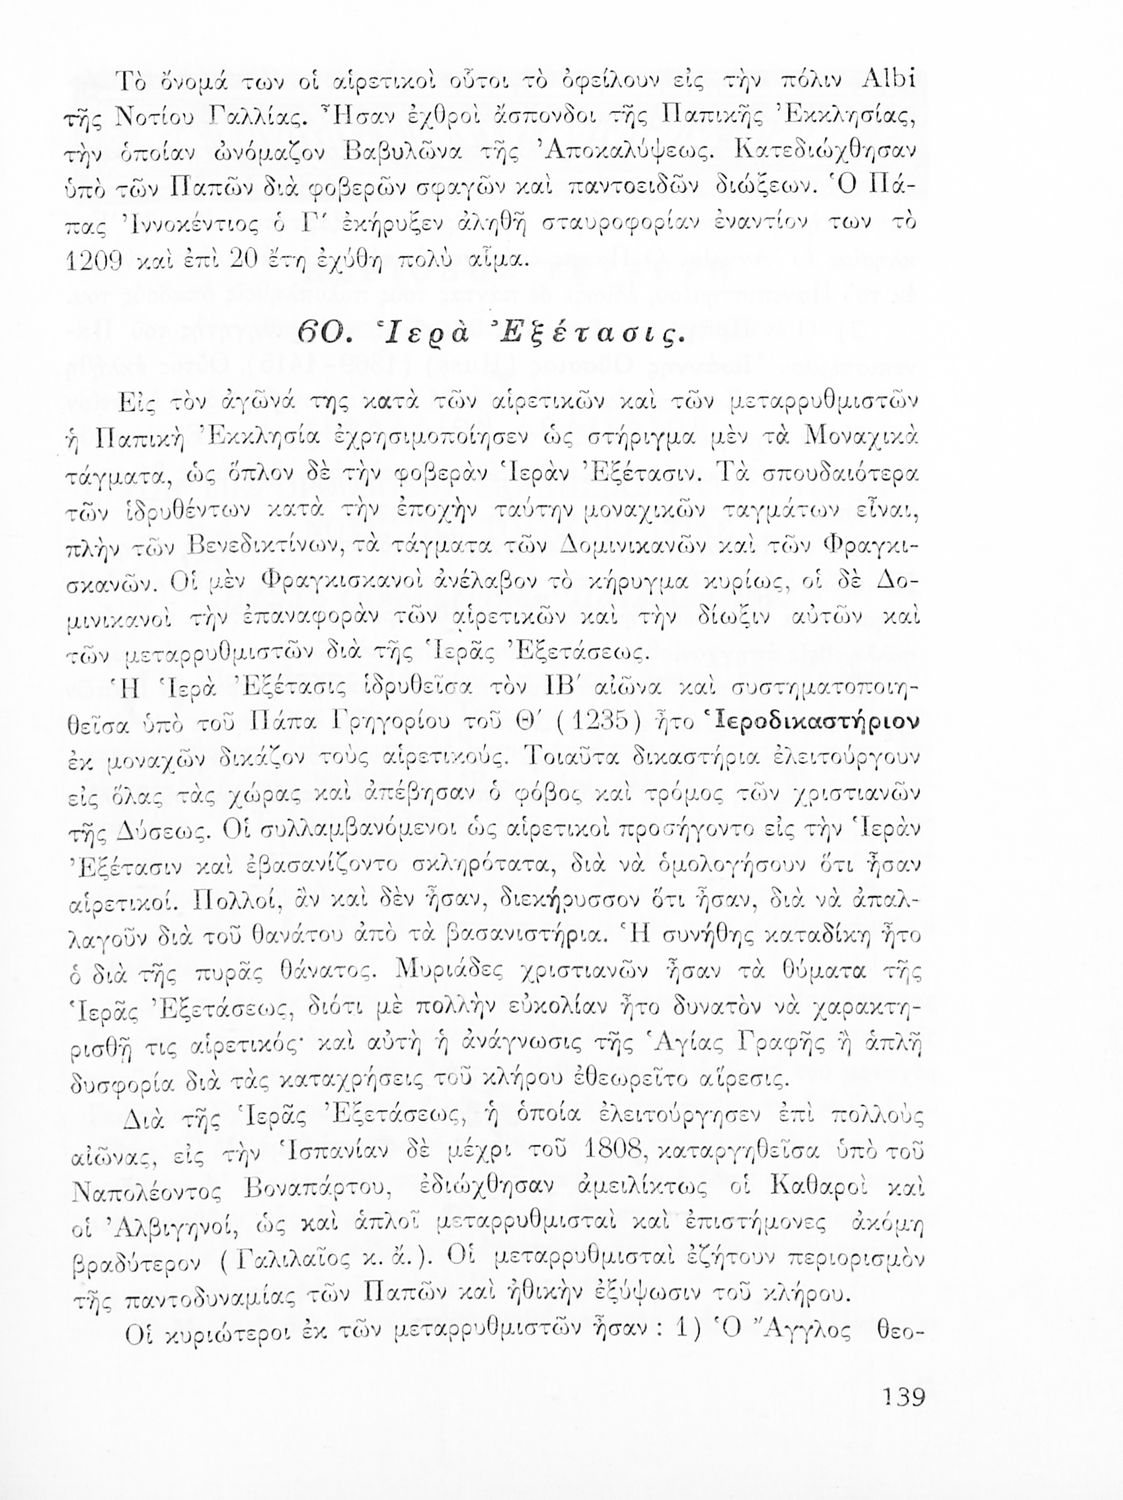 Τὸ ὄνομά των οἱ αἱρετικοὶ οὗτοι τὸ ὀφείλουν εἰς τὴν πόλιν Albi
τῆς Νοτίου Γαλλίας. Ἦσαν ἐχθροὶ ἄσπονδοι τῆς Παπικῆς Ἐκκλησίας,
τὴν ὁποίαν ὠνόμαζον Βαβυλῶνα τῆς Ἀποκαλύψεως. Κατεδιώχθησαν
ὑπὸ τῶν Παπῶν διὰ φοβερῶν σφαγῶν καὶ παντοειδῶν διώξεων. Ὁ Πά-
πας Ἰννοκέντιος ὁ Γ΄ ἐκήρυξεν ἀληθῆ σταυροφορίαν ἐναντίον των τὸ
1209 καὶ ἐπὶ 20 ἔτη ἐχύθη πολὺ αἷμα.
60. Ἱερὰ Ἐξέτασις.
Εἰς τὸν ἀγῶνά της κατὰ τῶν αἱρετικῶν καὶ τῶν μεταρρυθμιστῶν
ἡ Παπικὴ Ἐκκλησία ἐχρησιμοποίησεν ὡς στήριγμα μὲν τὰ Μοναχικὰ
τάγματα, ὡς ὅπλον δὲ τὴν φοβερὰν Ἱερὰν Ἐξέτασιν. Τὰ σπουδαιότερα
τῶν ἱδρυθέντων κατὰ τὴν ἐποχὴν ταύτην μοναχικῶν ταγμάτων εἶναι,
πλὴν τῶν Βενεδικτίνων, τὰ τάγματα τῶν Δομινικανῶν καὶ τῶν Φραγκι-
σκανῶν. Οἱ μὲν Φραγκισκανοὶ ἀνέλαβον τὸ κήρυγμα κυρίως, οἱ δὲ Δο-
μινικανοὶ τὴν ἐπαναφορὰν τῶν αἱρετικῶν καὶ τὴν δίωξιν αὐτῶν καὶ
τῶν μεταρρυθμιστῶν διὰ τῆς Ἱερᾶς Ἐξετάσεως.
Ἡ Ἱερὰ Ἐξέτασις ἱδρυθεῖσα τὸν ΙΒ΄ αἰῶνα καὶ συστηματοποιη-
θεῖσα ὑπὸ τοῦ Πάπα Γρηγορίου τοῦ Θ΄ (1235) ἦτο Ἱεροδικαστήριον
ἐκ μοναχῶν δικάζον τοὺς αἱρετικούς. Τοιαῦτα δικαστήρια ἐλειτούργουν
εἰς ὅλας τὰς χώρας καὶ ἀπέβησαν ὁ φόβος καὶ τρόμος τῶν χριστιανῶν
τῆς Δύσεως. Οἱ συλλαμβανόμενοι ὡς αἱρετικοὶ προσήγοντο εἰς τὴν Ἱερὰν
Ἐξέτασιν καὶ ἐβασανίζοντο σκληρότατα, διὰ νὰ ὁμολογήσουν ὅτι ἦσαν
αἱρετικοί. Πολλοί, ἂν καὶ δὲν ἦσαν, διεκήρυσσον ὅτι ἦσαν, διὰ νὰ ἀπαλ-
λαγοῦν διὰ τοῦ θανάτου ἀπὸ τὰ βασανιστήρια. Ἡ συνήθης καταδίκη ἦτο
ὁ διὰ τῆς πυρᾶς θάνατος. Μυριάδες χριστιανῶν ἦσαν τὰ θύματα τῆς
Ἱερᾶς Ἐξετάσεως, διότι μὲ πολλὴν εὐκολίαν ἦτο δυνατὸν νὰ χαρακτη-
ρισθῇ τις αἱρετικός· καὶ αὐτὴ ἡ ἀνάγνωσις τῆς Ἁγίας Γραφῆς ἢ ἁπλῆ
δυσφορία διὰ τὰς καταχρήσεις τοῦ κλήρου ἐθεωρεῖτο αἵρεσις.
Διὰ τῆς Ἱερᾶς Ἐξετάσεως, ἡ ὁποία ἐλειτούργησεν ἐπὶ πολλοὺς
αἰῶνας, εἰς τὴν Ἱσπανίαν δὲ μέχρι τοῦ 1808, καταργηθεῖσα ὑπὸ τοῦ
Ναπολέοντος Βοναπάρτου, ἐδιώχθησαν ἀμειλίκτως οἱ Καθαροὶ καὶ
οἱ Ἀλβιγηνοί, ὡς καὶ ἁπλοῖ μεταρρυθμισταὶ καὶ ἐπιστήμονες ἀκόμη
βραδύτερον (Γαλιλαῖος κ. ἄ.). Οἱ μεταρρυθμισταὶ ἐζήτουν περιορισμὸν
τῆς παντοδυναμίας τῶν Παπῶν καὶ ἠθικὴν ἐξύψωσιν τοῦ κλήρου.
Οἱ κυριώτεροι ἐκ τῶν μεταρρυθμιστῶν ἦσαν : 1) Ὁ Ἄγγλος θεο-
139